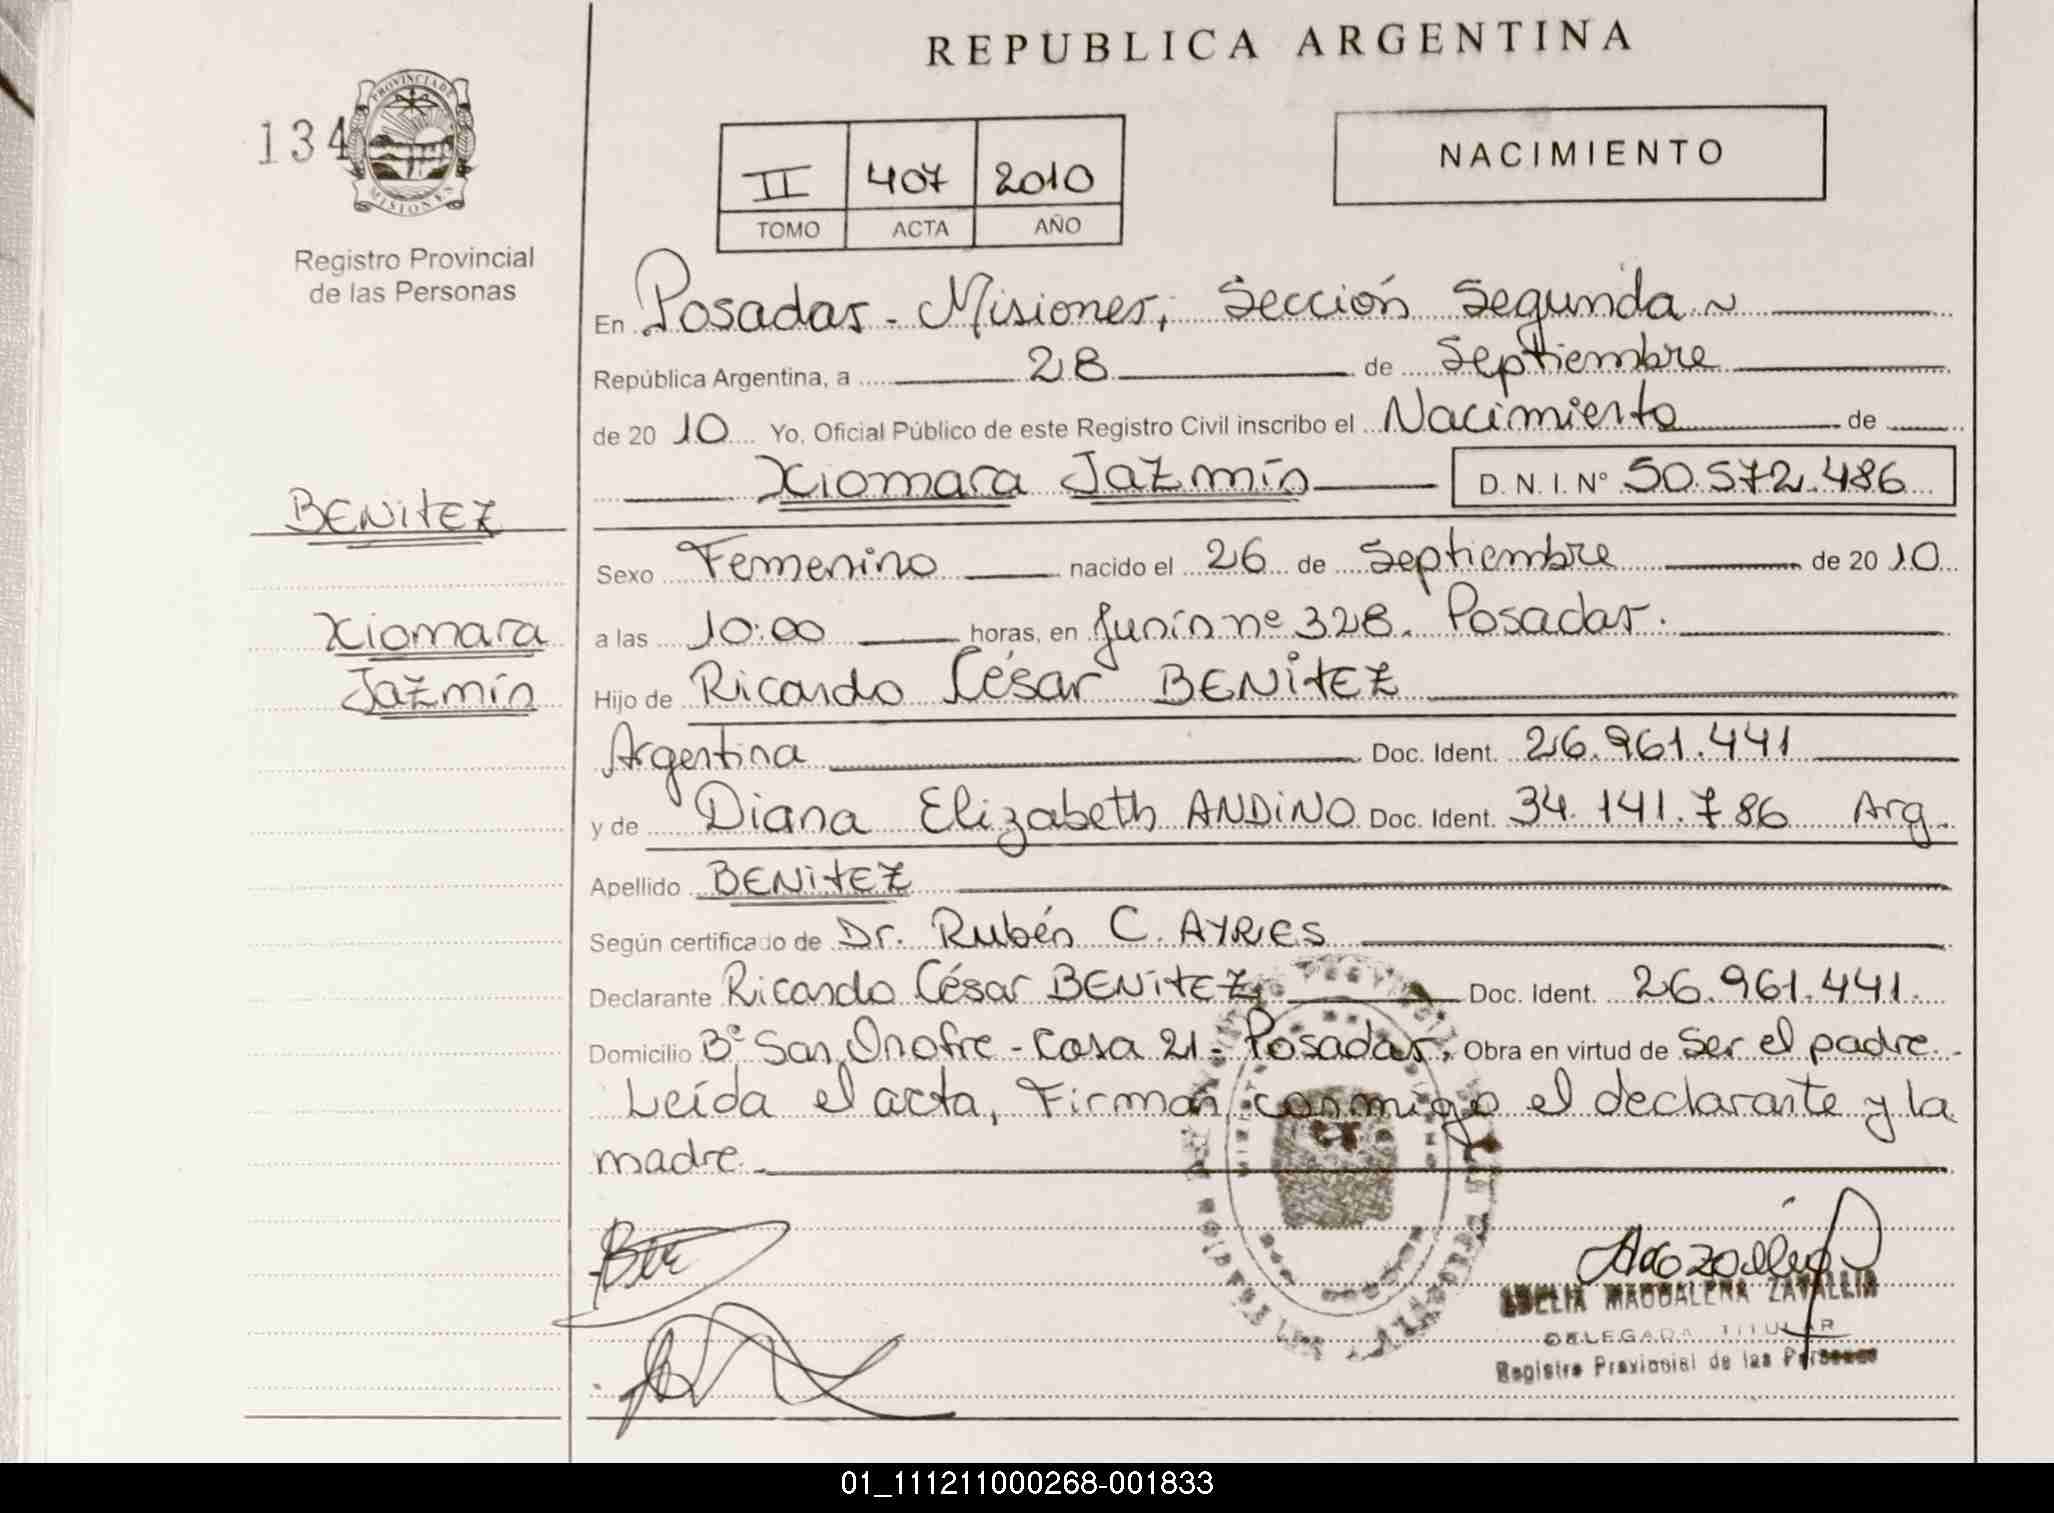 REPUBLICA ARGENTINA
134
PROVINCIA DE
MISIONES
Registro Provincial
de las Personas
II 407 2010
TOMO ACTA AÑO
NACIMIENTO
En Posadas - Misiones, Sección Segunda ~
República Argentina, a 28 de Septiembre
de 20 10 Yo, Oficial Público de este Registro Civil inscribo el Nacimiento de
Xiomara Jazmín D. N. I. Nº 50.572.486
BENITEZ
Sexo Femenino nacido el 26 de Septiembre de 20 10
Xiomara
a las 10:00 horas, en Junín nº 328. Posadas.
Jazmín
Hijo de Ricardo César BENITEZ
Argentina Doc. Ident. 26.961.441
y de Diana Elizabeth ANDINO Doc. Ident. 34.141.786 Arg.
Apellido BENITEZ
Según certificado de Dr. Rubén C. AYRES
Declarante Ricardo César BENITEZ Doc. Ident. 26.961.441.
Domicilio Bº San Onofre - Casa 21 - Posadas, Obra en virtud de Ser el padre.-
Leída el acta, Firman conmigo el declarante y la
madre.
MAGDALENA ZAVALLIA
DELEGADA TITULAR
Registro Provincial de las Personas
01_111211000268-001833